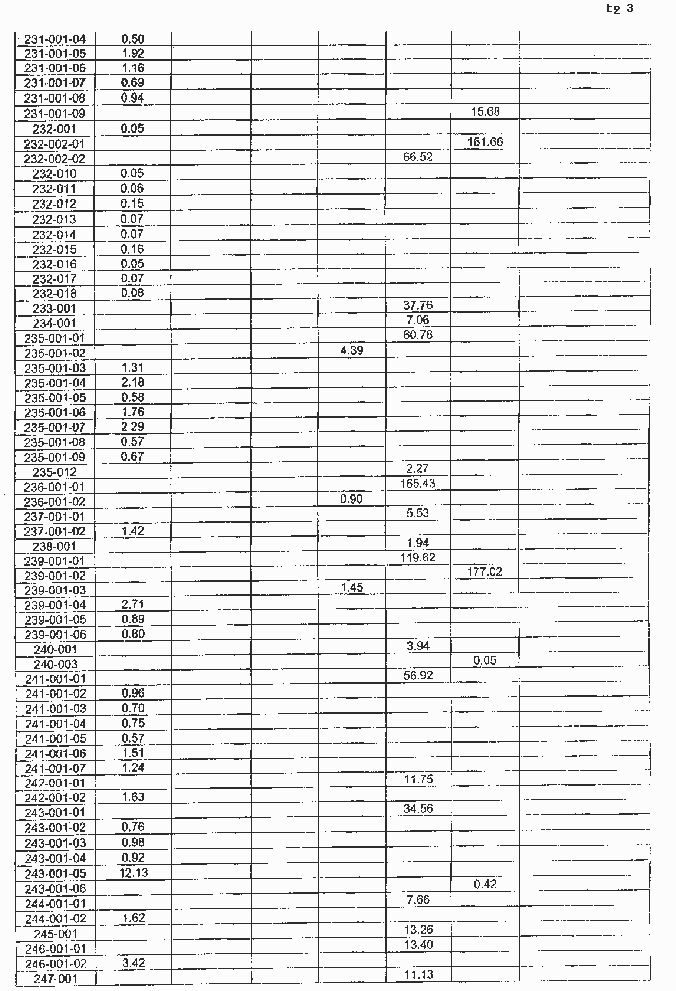 tg 3
231-001-04 0.50
231-001-05 1.92
231-001-06 1.16
231-001-07 0.69
231-001-08 0.94
231-001-09 15.68
232-001 0.05
232-002-01 161.66
232-002-02 66.52
232-010 0.05
232-011 0.06
232-012 0.15
232-013 0.07
232-014 0.07
232-015 0.16
232-016 0.05
232-017 0.07
232-018 0.08
233-001 37.76
234-001 7.06
235-001-01 60.78
235-001-02 4.39
235-001-03 1.31
235-001-04 2.18
235-001-05 0.58
235-001-06 1.76
235-001-07 2.29
235-001-08 0.57
235-001-09 0.67
235-012 2.27
236-001-01 165.43
236-001-02 0.90
237-001-01 5.53
237-001-02 1.42
238-001 1.94
239-001-01 119.62
239-001-02 177.02
239-001-03 1.45
239-001-04 2.71
239-001-05 0.89
239-001-06 0.80
240-001 3.94
240-003 0.05
241-001-01 56.92
241-001-02 0.96
241-001-03 0.70
241-001-04 0.75
241-001-05 0.57
241-001-06 1.51
241-001-07 1.24
242-001-01 11.75
242-001-02 1.63
243-001-01 34.56
243-001-02 0.76
243-001-03 0.98
243-001-04 0.92
243-001-05 12.13
243-001-06 0.42
244-001-01 7.66
244-001-02 1.62
245-001 13.26
246-001-01 13.40
246-001-02 3.42
247-001 11.13